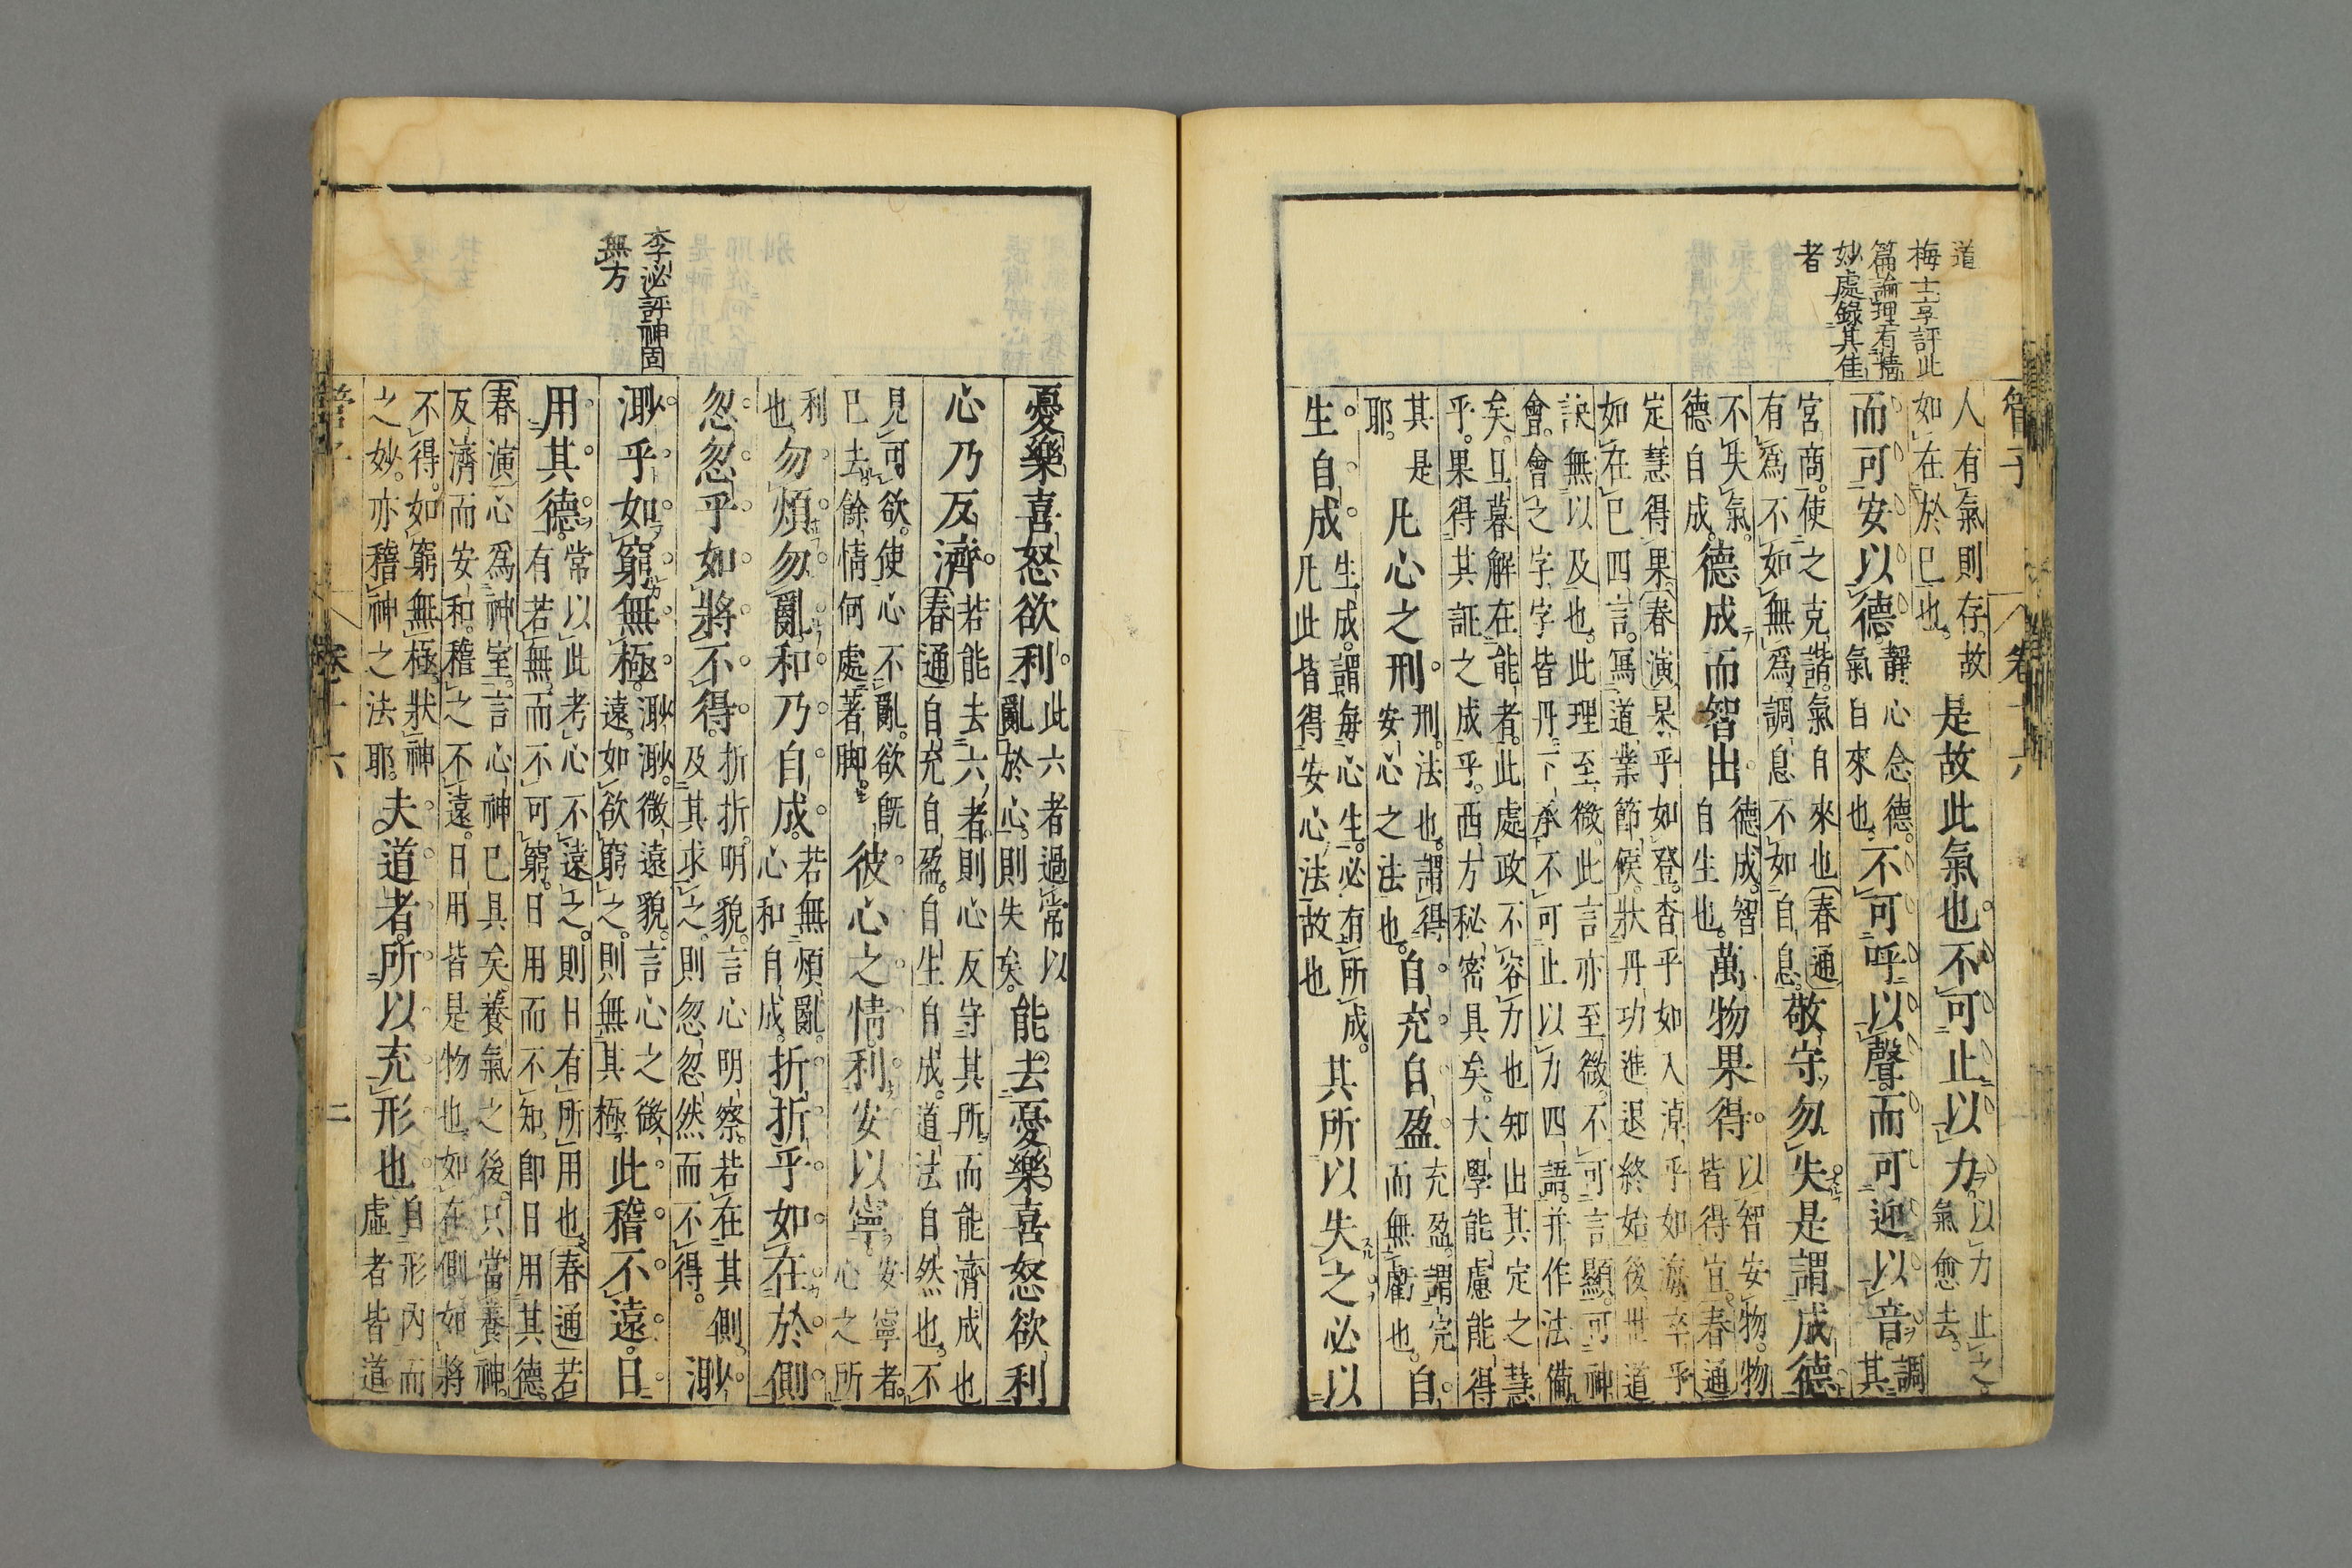 道
梅士享評此
篇論理有精
妙處錄其佳
者
管子 卷十六
人有氣則存故如在於已也是故此氣也不可止以力以力止之氣愈去
而可安以德靜心念德氣自來也不可呼以聲而可迎以音調其
宮商使之克諧氣自來也春通有為不如無為調息不如自息敬守勿失是謂成德
不失氣德自成德成而智出德成智自生也萬物果得以智安物物皆得宜春通
定慧得果春演杲乎如登杳乎如入淖乎如海卒乎如在已四言寫道業節候狀丹功進退終始後世道
訣無以及也此理至微此言亦至微不可言顯可神會會之字字皆丹下承不可止以力四語并作法備
矣且暮解在能者此處政不容力也知出其定之慧乎果得其証之成乎西方秘密具矣大學能慮能得
其是耶凡心之刑刑法也謂得安心之法也自充自盈充盈謂完而無虧也自
生自成生成謂每心生必有所成凡此皆得安心法故也其所以失之必以
憂樂喜怒欲利此六者過常以亂於心則失矣能去憂樂喜怒欲利
心乃反濟若能去六者則心反守其所而能濟成也春通自充自盈自生自成道法自然也不
見可欲使心不亂欲既已去餘情何處著脚彼心之情利安以寧安寧者心之所
利也勿煩勿亂和乃自成若無煩亂心和自成折折乎如在於側
忽忽乎如將不得折折明貌言心明察若在其側及其求之則忽忽然而不得渺
渺乎如窮無極渺渺微遠貌言心之微遠如欲窮之則無其極此稽不遠日
用其德常以此考心不遠之則日有所用也春通若有若無而不可窮日用而不知卽日用其德
春演心為神室言心神已具矣養氣之後只當養神反濟而安和稽之不遠日用皆是物也如在側如將
不得如窮無極狀神之妙亦稽神之法耶夫道者所以充形也自形內而虛者皆道
李泌評神固
無方
管子 卷十六 二